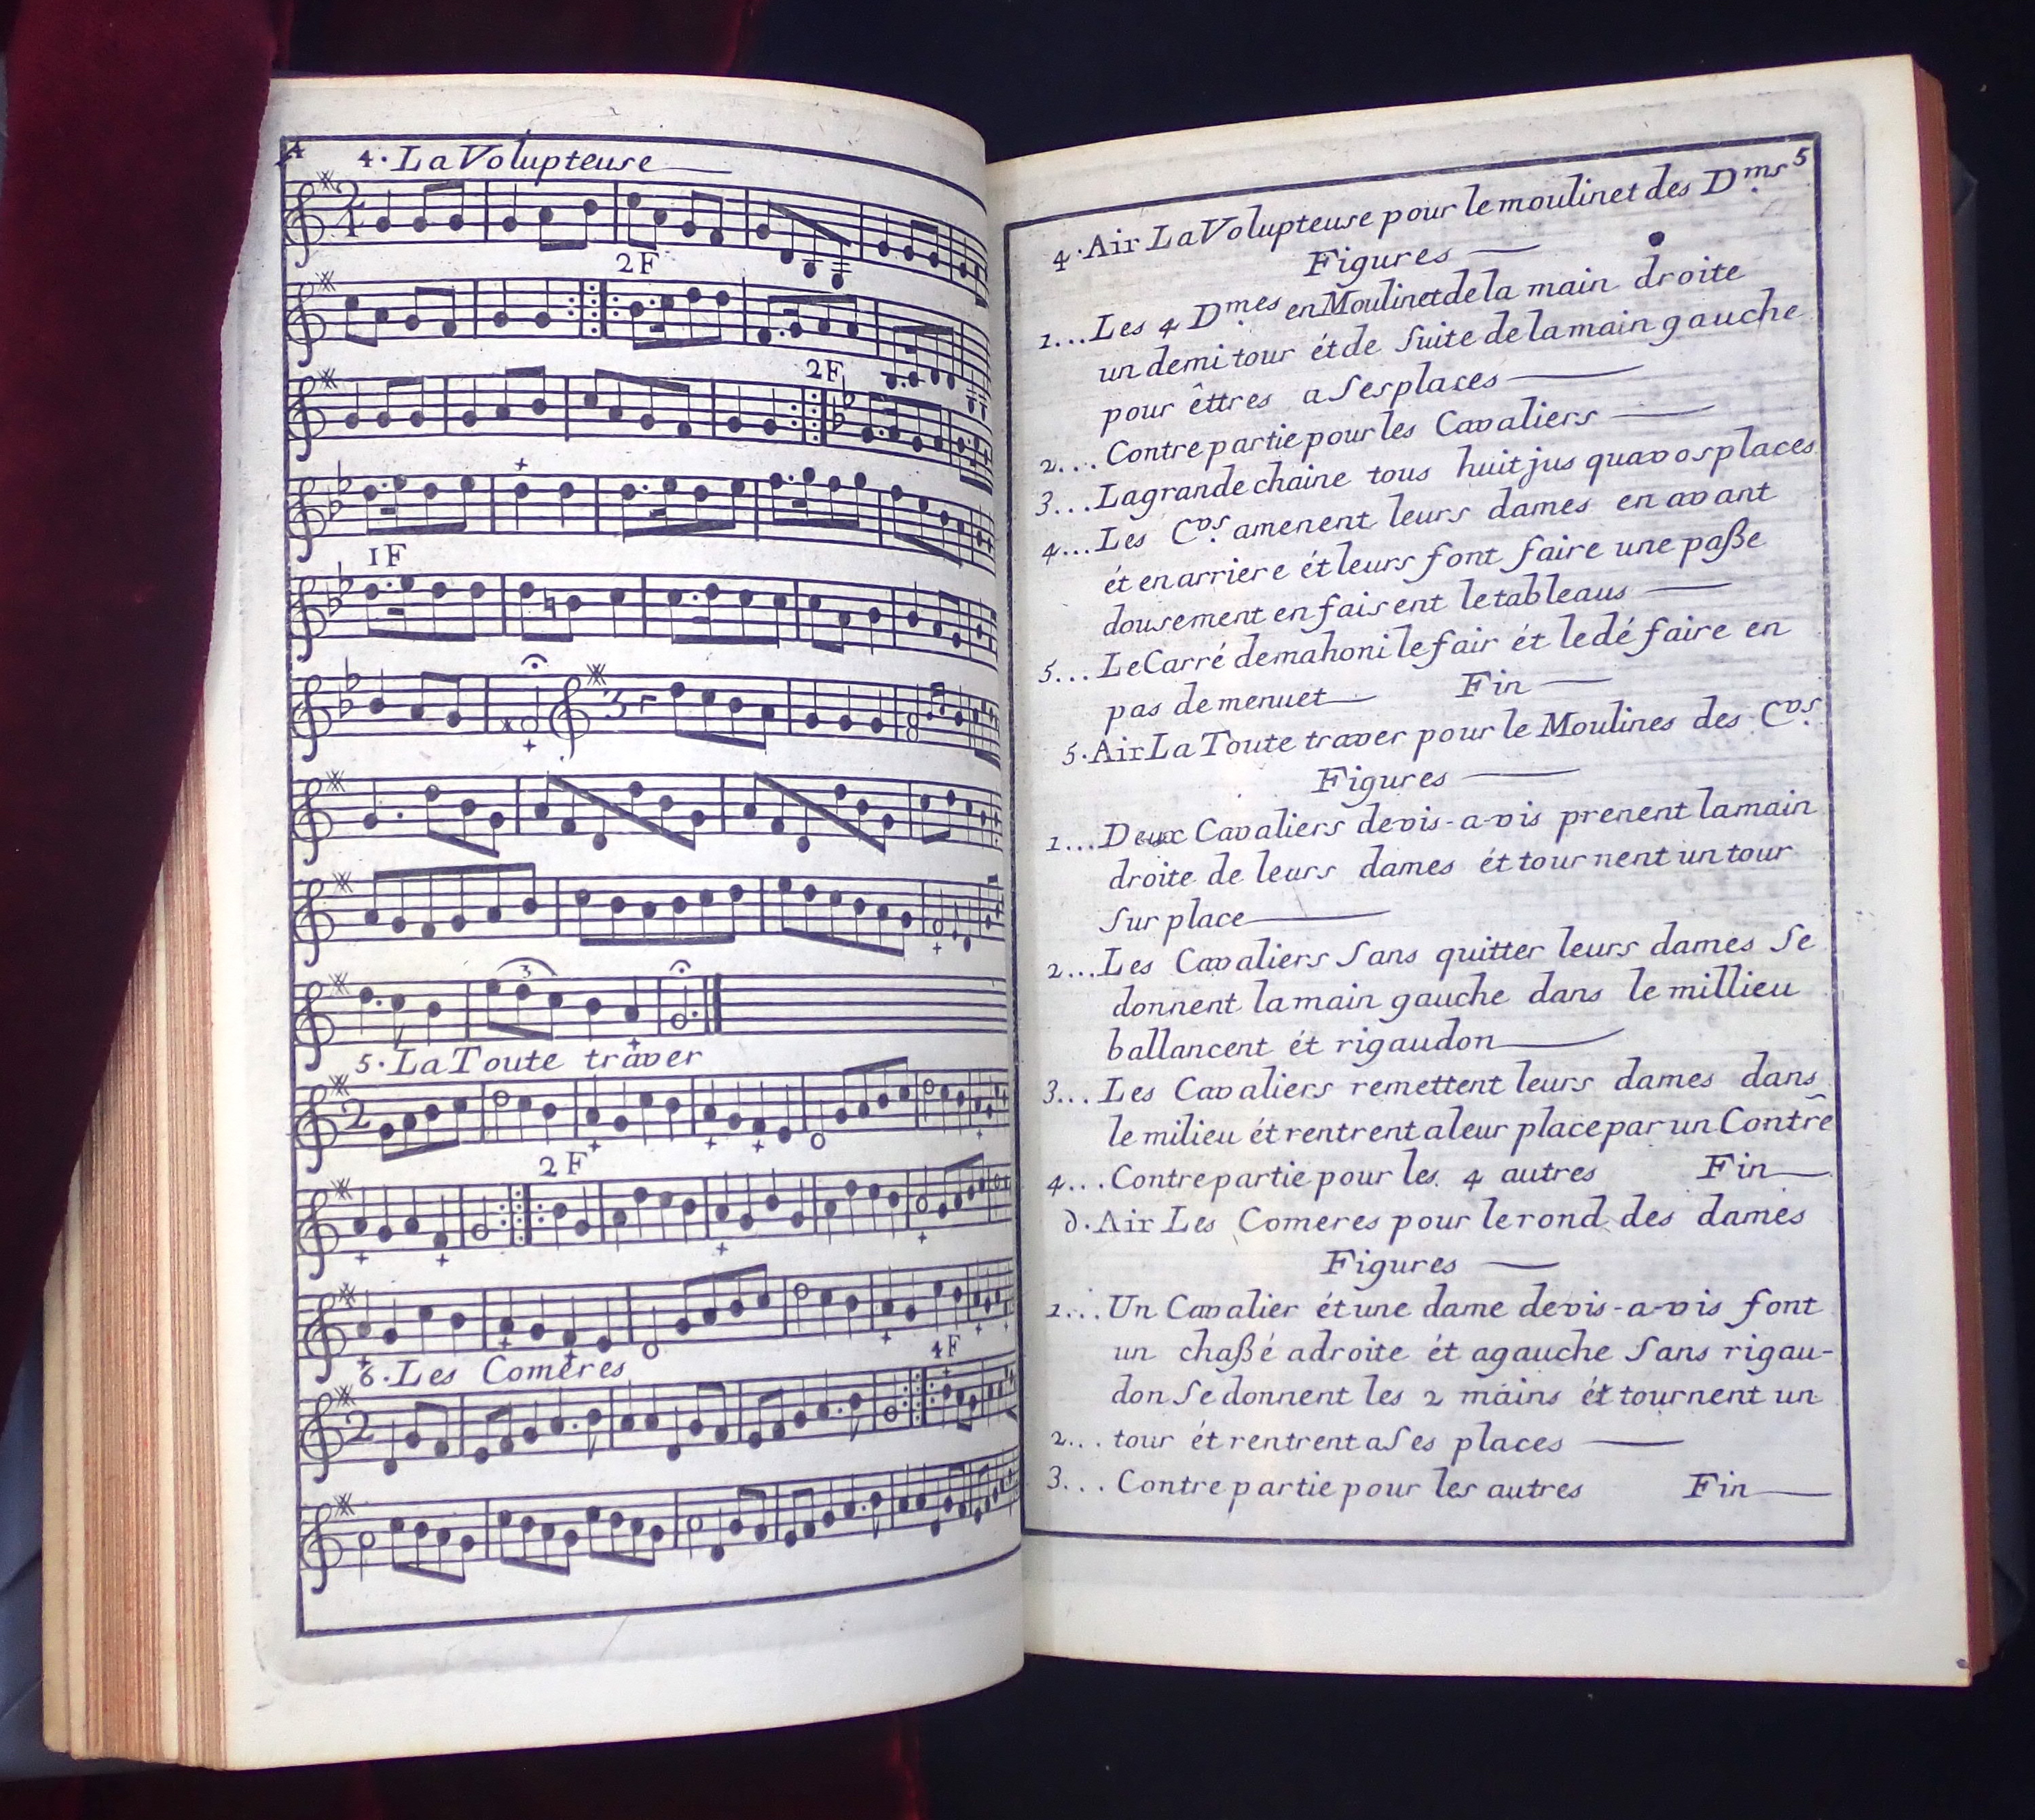 4
4. La Volupteuse
2F
2F
1F
3
5. La Toute traver
2F
6. Les Coméres
4F
5
4. Air La Volupteuse pour le moulinet des Dms.
Figures
1... Les 4 Dmes en Moulinet de la main droite
un demi tour ét de Suite de la main gauche
pour êttres a Ses places
2.... Contre partie pour les Cavaliers
3... La grande chaine tous huit jus qua vos places
4... Les Cvs. amenent leurs dames en avant
ét en arriere ét leurs font faire une paße
dousement en faisent le tableaus
5... Le Carré de mahoni le fair ét le dé faire en
pas de menuet Fin
5. Air La Toute traver pour le Moulines des Cvs.
Figures
1... Deux Cavaliers de vis-a-vis prenent la main
droite de leurs dames ét tournent un tour
Sur place
2... Les Cavaliers Sans quitter leurs dames Se
donnent la main gauche dans le millieu
ballancent ét rigaudon
3... Les Cavaliers remettent leurs dames dans
le milieu ét rentrent a leur place par un Contr̃e
4... Contre partie pour les 4 autres Fin
6. Air Les Comeres pour le rond des dames
Figures
1... Un Cavalier ét une dame de vis-a-vis font
un chaßé a droite ét a gauche Sans rigau-
don Se donnent les 2 mains ét tournent un
2... tour ét rentrent a Ses places
3... Contre partie pour les autres Fin